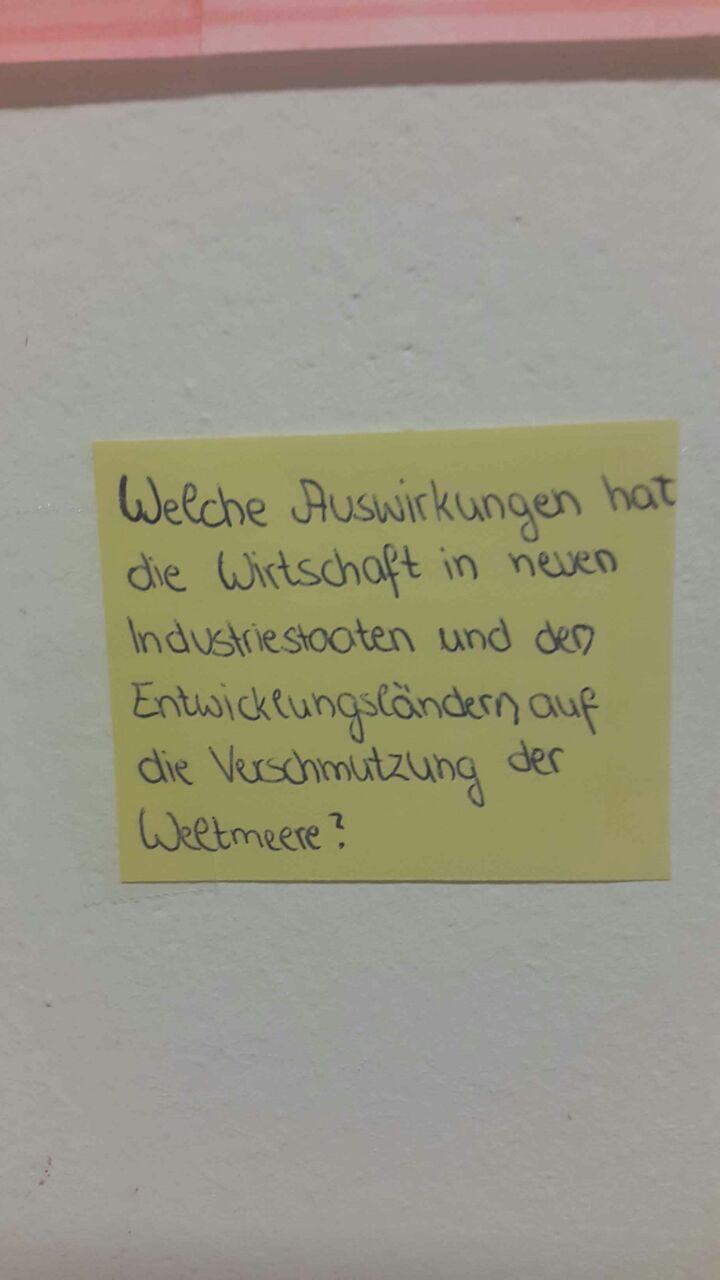 Welche Auswirkungen hat
die Wirtschaft in neuen
Industriestaaten und den
Entwicklungsländern auf
die Verschmutzung der
Weltmeere?